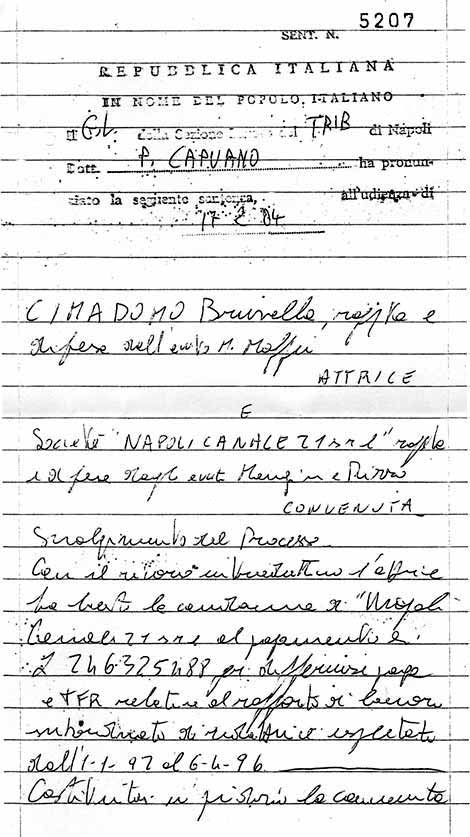 5207
SENT. N.
REPUBBLICA ITALIANA
IN NOME DEL POPOLO ITALIANO
Il G.L. della Sezione Lavoro del TRIB di Napoli
Dott. P. CAPUANO ha pronun-
ciato la seguente sentenza, all'udienza di
17 2 04
CIMADOMO Brunella, rapp.ta e
difesa dall'avv.to M.
ATTRICE
E
Società "NAPOLI CANALE 21 s r l" rapp.ta
e difesa dagli avv.ti e
CONVENUTA
Svolgimento del Processo
Con il ricorso introduttivo l'attrice
ha chiesto la condanna di "Napoli
Canale 21 s r l al pagamento di
£ 246325488 per differenze paga
e TFR relative al rapporto di lavoro
subordinato di redattrice espletato
dall'1-1-92 al 6-4-96
Costituitasi in giudizio la convenuta